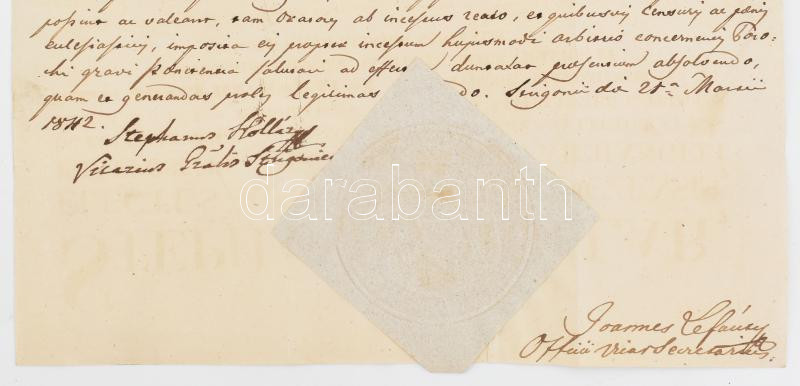 possint ac valeant, tam Oratores ab incestus reatu, et quibusvis Censuris ac pœnis
Ecclesiasticis, imposita eis propter incestum hujusmodi arbitrio concernentis Paro-
chi gravi Pœnitentia salutari ad effectum duntaxat præsentium absolvendo,
quam et generandas proles legitimas do. Strigonii die 21ma Martii
1842.
Stephanus Kollár
Vicarius Gralis Strigoniensis
darabanth
Joannes
Officii Vicar Secretarius.